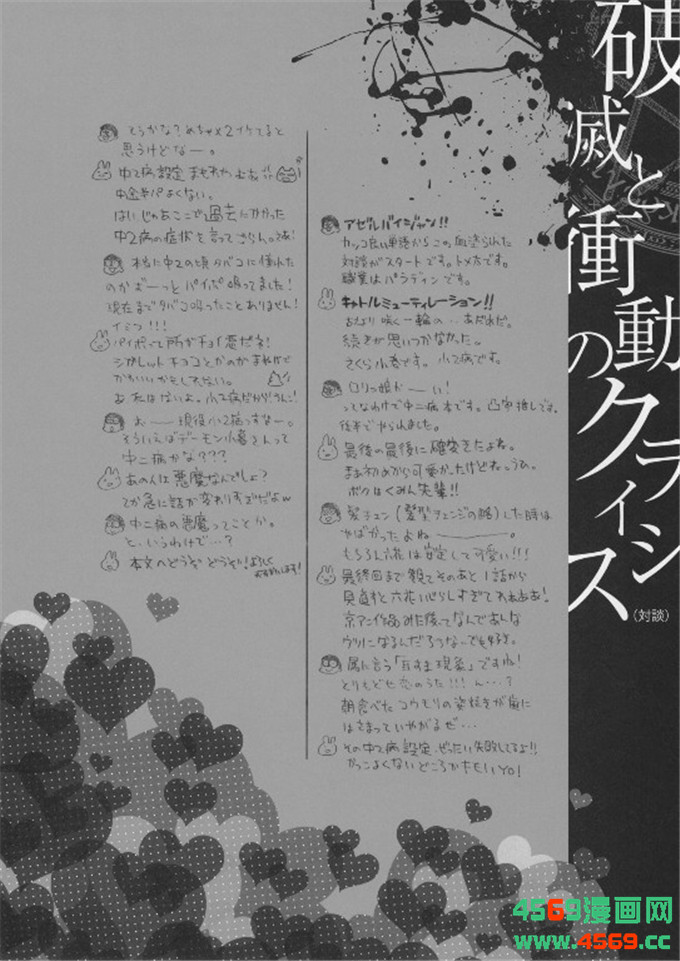 破滅と衝動のクライシス
(対談)
アゼルバイジャン!!
カッコ良い単語からこの血塗られた
対談がスタートです。トメ吉です。
職業はパラディンです。
キャトルミューティレーション!!
続きが思いつかなかった。
さくら小春です。小2病です。
ロリっ娘かーい!
ってなわけで中二病本です。凸守推しです。
後半でやられました。
最後の最後に確変きたよね。
まあ初めから可愛かったけどね。うひ。
ボクはくみん先輩!!
髪チェン(髪型チェンジの略)した時は
やばかったよねー。
もちろん六花は安定して可愛い!!!
最終回まで観てそのあと1話から
見直すと六花
京アニ
俗に言う「耳すま現象」ですね!
とりもどせ恋のうた!!!ん…?
朝食べたコウモリの姿焼きが歯に
はさまっていやがるぜ…
その中2病設定、ぜったい失敗してるよ!!
かっこよくないどころかキモいYO!
そうかな?めちゃ×2イケてると
思うけどなー。
中2病設定
中途半パよくない。
はい じゃあここで過去にかかった
中2病の症状を言ってもらんってお!
本当に中2の頃タバコに憧れた
のかずーっとパイポ吸ってました!
現在までタバコ吸ったことありません!
イミフ!!!
パイポって所がチョイ悪だネ!
シガレットチョコとかのがまねかと
かわいいかもしれない。
小2病だから!うんこ!
おー 現役小2病っすなー。
そういえばデーモン小暮さんって
中二病かな???
あの人は悪魔なんでしょ?
てか急に話が変わりすぎだよw
中二病の悪魔ってことか。
と、いうわけで…?
本文へどうぞどうぞ!よろしく
おねがいします!
4569漫画网
www.4569.cc